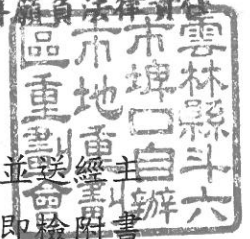 願負法律
雲林縣斗六
市埤口自辦
市地重劃
區重劃會
並送經主
即檢附書